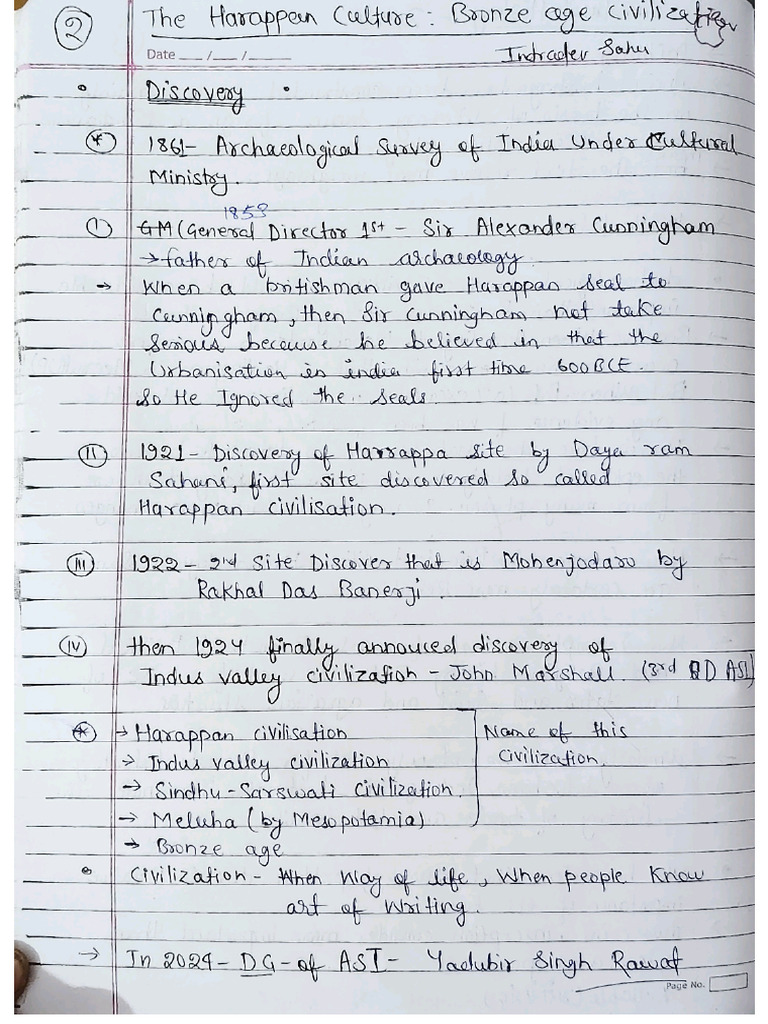 ② The Harappan Culture: Bronze age civilization
Date ___/___/_____
Indradev Sahu
• Discovery •
* 1861- Archaeological Survey of India Under Cultural
Ministry.
1853
① GM (General Director 1st - Sir Alexander Cunningham
→ father of Indian archaeology
→ When a britishman gave Harappan seal to
Cunningham, then Sir Cunningham not take
serious because he believed in that the
Urbanisation in india first time 600 BCE.
So He Ignored the seals.
II 1921- Discovery of Harrappa site by Daya ram
Sahani, first site discovered so called
Harappan civilisation.
III 1922- 2nd Site Discover that is Mohenjodaro by
Rakhal Das Banerji.
IV then 1924 finally annouced discovery of
Indus valley civilization - John Marshall. (3rd D ASI)
* → Harappan civilisation
Name of this
→ Indus valley civilization
civilization.
→ Sindhu-Sarswati civilization.
→ Meluha (by Mesopotamia)
→ Bronze age
• Civilization - When way of life, When people Know
art of writing.
→ In 2024- DG- of ASI- Yadubir Singh Rawat
Page No.